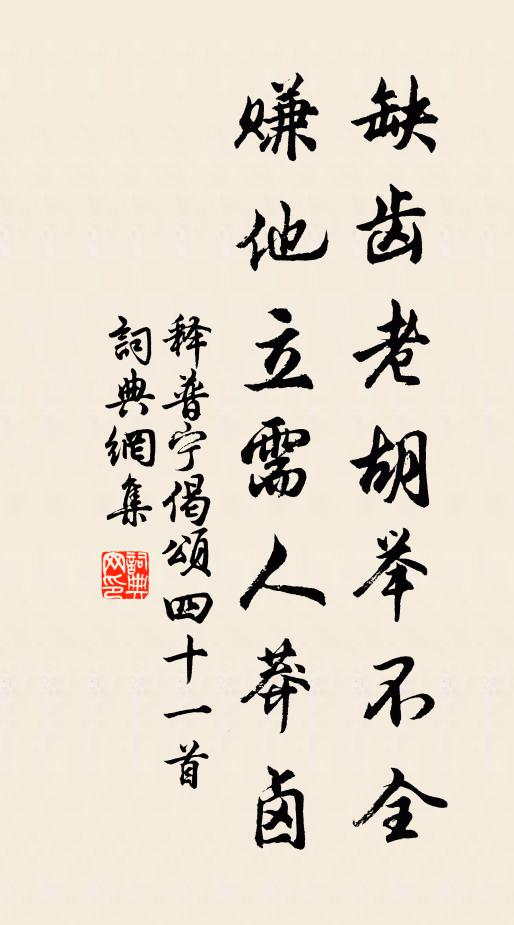 缺齿老胡举不全
赚他立需人莽卤
释普宁偈颂四十一首
詞典網集
詞典网印